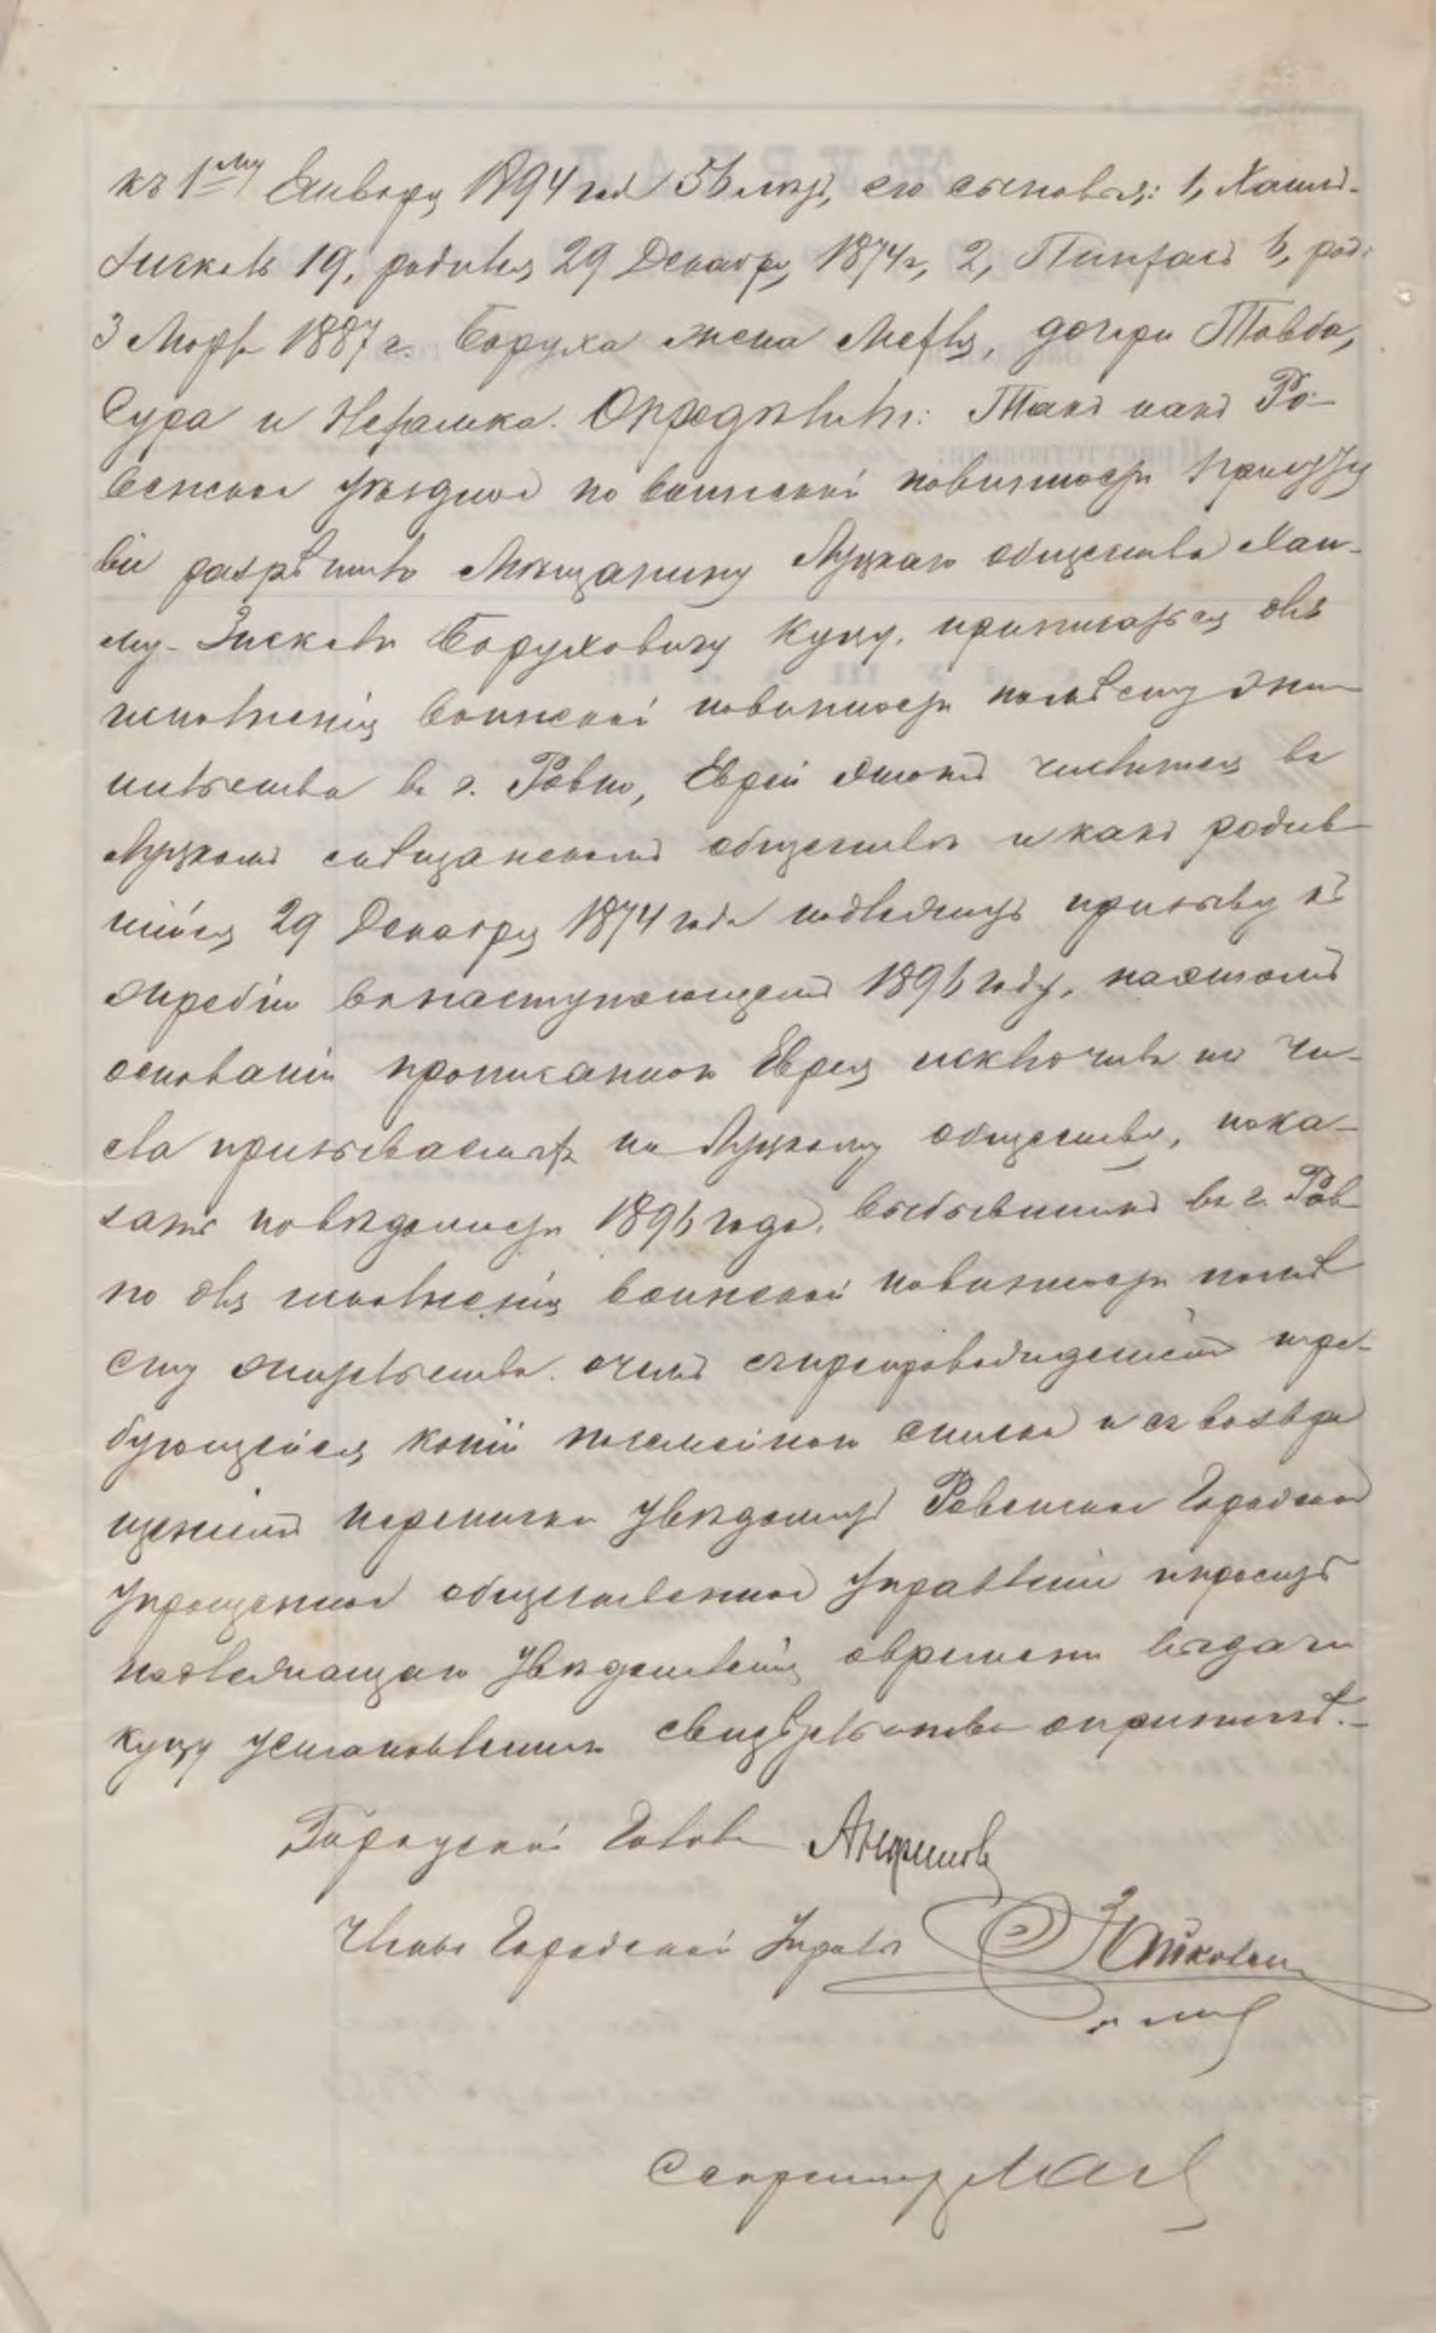 къ 1му Январу 1894 года 56 летъ, его сыновья: 1, Хаимъ-
Зискель 19, родился 29 Декабря 1874 г., 2, Пинхасъ 6, род:
3 Марта 1887 г. Боруха жена дочери Товба,
Сура и Нехамка. Определили: Такъ какъ Ро-
венское уездное по воинской повинности Присутст
віе разрешило Мещанину Луцкаго общества Хаи-
му-Зискелю Боруховичу Куцу, приписаться для
исполненія воинской повинности по месту
жительства въ г. Ровно, Еврей числится въ
Луцкомъ мещанскомъ обществе и какъ родив
шійся 29 Декабря 1874 года подлежитъ призыву къ
жребію въ наступающемъ 1896 году, на этомъ
основаніи прописаннаго Еврея исключить изъ чи-
сла призываемыхъ по Луцкому обществу, пока-
зать по ведомости 1896 года, выбывшимъ въ г. Ров
но для исполненія воинской повинности по ме
сту жительства. о чемъ съ препровожденіемъ тре-
бующейся копіи посемейнаго списка и съ возвра
щеніемъ переписки уведомить Ровенское Городское
Упрощенное общественное Управленіе и просить
надлежащаго уведомленія о времени выдачи
Куцу установленнаго свидетельства о приписке.-
Городской Голова
Членъ Городской Управы
Секретарь